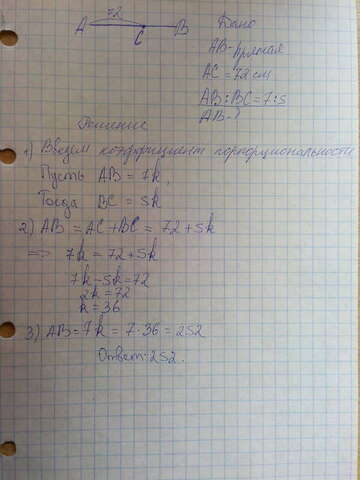 72
A C B
Дано
AB - прямая
AC = 72 см
AB : BC = 7 : 5
AB - ?
Решение
1) Введем коэффициент пропорциональности
Пусть AB = 7k,
Тогда BC = 5k
2) AB = AC + BC = 72 + 5k
=> 7k = 72 + 5k
7k - 5k = 72
2k = 72
k = 36
3) AB = 7k = 7 · 36 = 252
Ответ: 252.